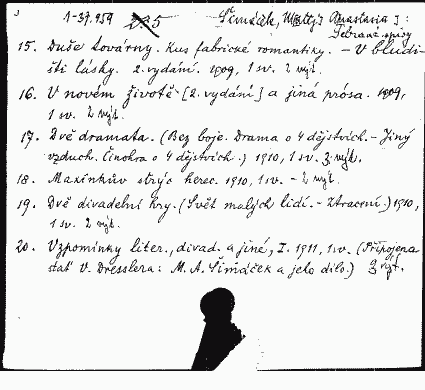 1-37.959 Šimáček, Matěj Anastasia 1:
Sebrané spisy
15. Duše továrny. Kus fabrické romantiky. – V bludi-
šti lásky. 2. vydání. 1909, 1 sv. 2 výt.
16. V novém životě [2. vydání] a jiná prósa. 1909,
1 sv. 2 výt.
17. Dvě dramata. (Bez boje. Drama o 4 dějstvích. – Jiný
vzduch. Činohra o 4 dějstvích.) 1910, 1 sv. 3 výt.
18. Maxínkův strýc herec. 1910, 1 sv. – 2 výt.
19. Dvě divadelní hry. (Svět malých lidí. – Ztracení.) 1910,
1 sv. 2 výt.
20. Vzpomínky liter., divad. a jiné, I. 1911, 1 sv. (Připojena
stať V. Dresslera: M. A. Šimáček a jeho dílo.) 3 výt.